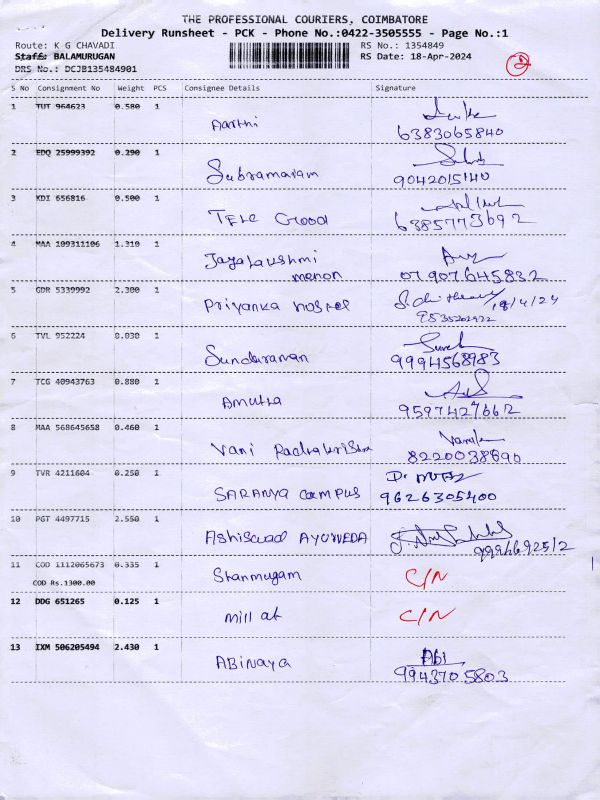 THE PROFESSIONAL COURIERS, COIMBATORE
Delivery Runsheet - PCK - Phone No.:0422-3505555 - Page No.:1
Route: K G CHAVADI RS No.: 1354849
Staff: BALAMURUGAN RS Date: 18-Apr-2024
DRS No.: DCJB135484901 2
S No Consignment No Weight PCS Consignee Details Signature
1 TUT 964623 0.580 1
Aarthi
6383065840
2 EDQ 25999392 0.290 1
Subramaram
9042015140
3 KDI 656816 0.500 1
TELE Good
6385773692
4 MAA 109311106 1.310 1
Jayalaushmi
menon 07907645832
5 GDR 5339992 2.300 1
Priyanka hostel 18/4/24
9535202922
6 TVL 952224 0.030 1
Sundaraman 9994568983
7 TCG 40943763 0.880 1
Amutha
9597427662
8 MAA 568645658 0.460 1
Vani
8220038890
9 TVR 4211604 0.250 1
SARANYA campus 9626305400
10 PGT 4497715 2.550 1
AYURVEDA
9994692512
11 COD 1112065673 0.335 1
COD Rs.1300.00 Shanmugam C/N
12 DDG 651265 0.125 1
mill at C/N
13 IXM 506205494 2.430 1
ABiNAYA Abi
9943705803